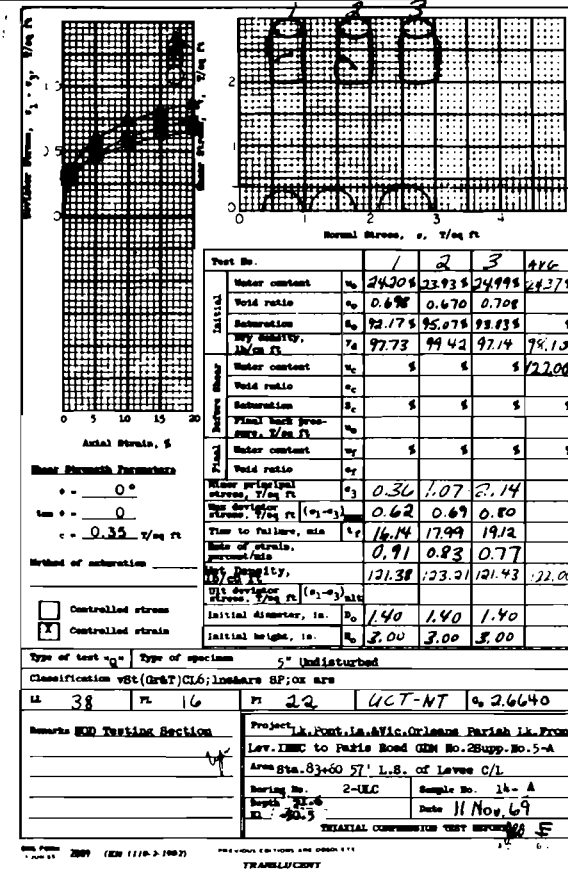 1 2 3
Deviator Stress, σ1 - σ3, T/sq ft
Shear Stress, T/sq ft
1.0
0.5
0
2
1
0
0 1 2 3 4 5
Normal Stress, σ, T/sq ft
0 5 10 15 20
Axial Strain, %
Shear Strength Parameters
φ = 0°
tan φ = 0
c = 0.35 T/sq ft
Method of saturation
Controlled stress
X Controlled strain
Test No. 1 2 3 AVG
Initial
Water content w₀ 24.20% 23.93% 24.99% 24.37%
Void ratio e₀ 0.698 0.670 0.708
Saturation S₀ 92.17% 95.07% 93.83% %
Dry density, lb/cu ft γd 97.73 99.42 97.14 98.10
Before Shear
Water content wc % % % 122.00
Void ratio ec
Saturation Sc % % % %
Final back pressure, T/sq ft u₀
Final
Water content wf % % % %
Void ratio ef
Minor principal stress, T/sq ft σ3 0.36 1.07 2.14
Max deviator stress, T/sq ft (σ1-σ3) 0.62 0.69 0.80
Time to failure, min tf 16.14 17.99 19.12
Rate of strain, percent/min 0.91 0.83 0.77
Wet Density, lb/cu ft 121.38 123.21 121.43 122.00
Ult deviator stress, T/sq ft (σ1-σ3)ult
Initial diameter, in. D₀ 1.40 1.40 1.40
Initial height, in. H₀ 3.00 3.00 3.00
Type of test "Q" Type of specimen 5" Undisturbed
Classification vSt(Gr&T)CL6;lns&ars SP;ox ars
LL 38 PL 16 PI 22 UCT-NT Gs 2.6640
Remarks NOD Testing Section
Project Lk.Pont.La.&Vic.Orleans Parish Lk.Front
Lev.IHNC to Paris Road GDM No.2Supp.No.5-A
Area Sta.83+60 57' L.S. of Levee C/L
Boring No. 2-ULC Sample No. 14-A
Depth El -30.5 Date 11 Nov. 69
TRIAXIAL COMPRESSION TEST REPORT
2089 (EM 1110-2-1902) PREVIOUS EDITIONS ARE OBSOLETE
TRANSLUCENT